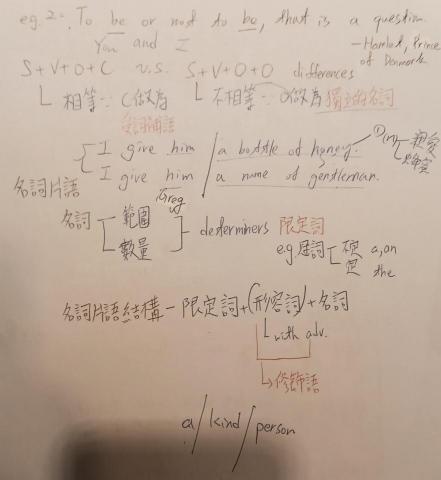 eg. 2: To be or not to be, that is a question.
You and I
—Hamlet, Prince of Denmark
S+V+O+C v.s. S+V+O+O differences
相等∵C做為受詞補語
不相等∵O做為獨立的名詞
I give him / a bottle of honey. ①(n) 親愛 蜂蜜
I give him / a name of gentleman.
Greg
名詞片語
名詞 範圍 數量 determiners 限定詞
e.g. 冠詞 a, an
定 the
名詞片語結構 - 限定詞+(形容詞)+名詞
with adv.
→修飾語
a / kind / person